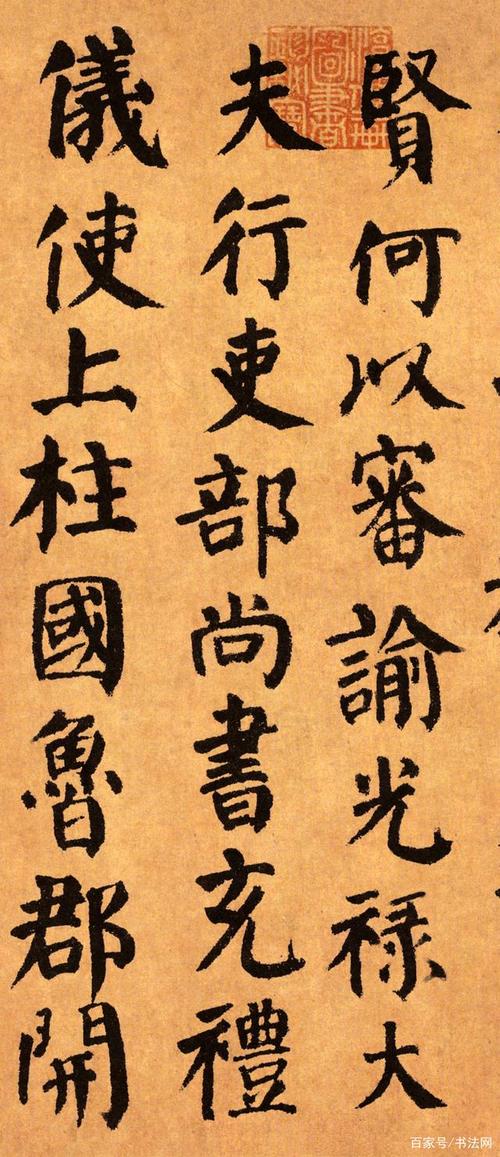 賢何以審諭光祿大
夫行吏部尚書充禮
儀使上柱國魯郡開
百家号/书法网